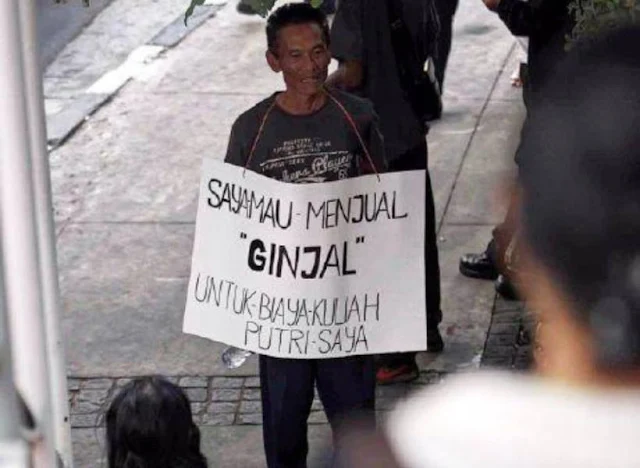 SAYA MAU - MENJUAL
"GINJAL"
UNTUK - BIAYA - KULIAH
PUTRI - SAYA